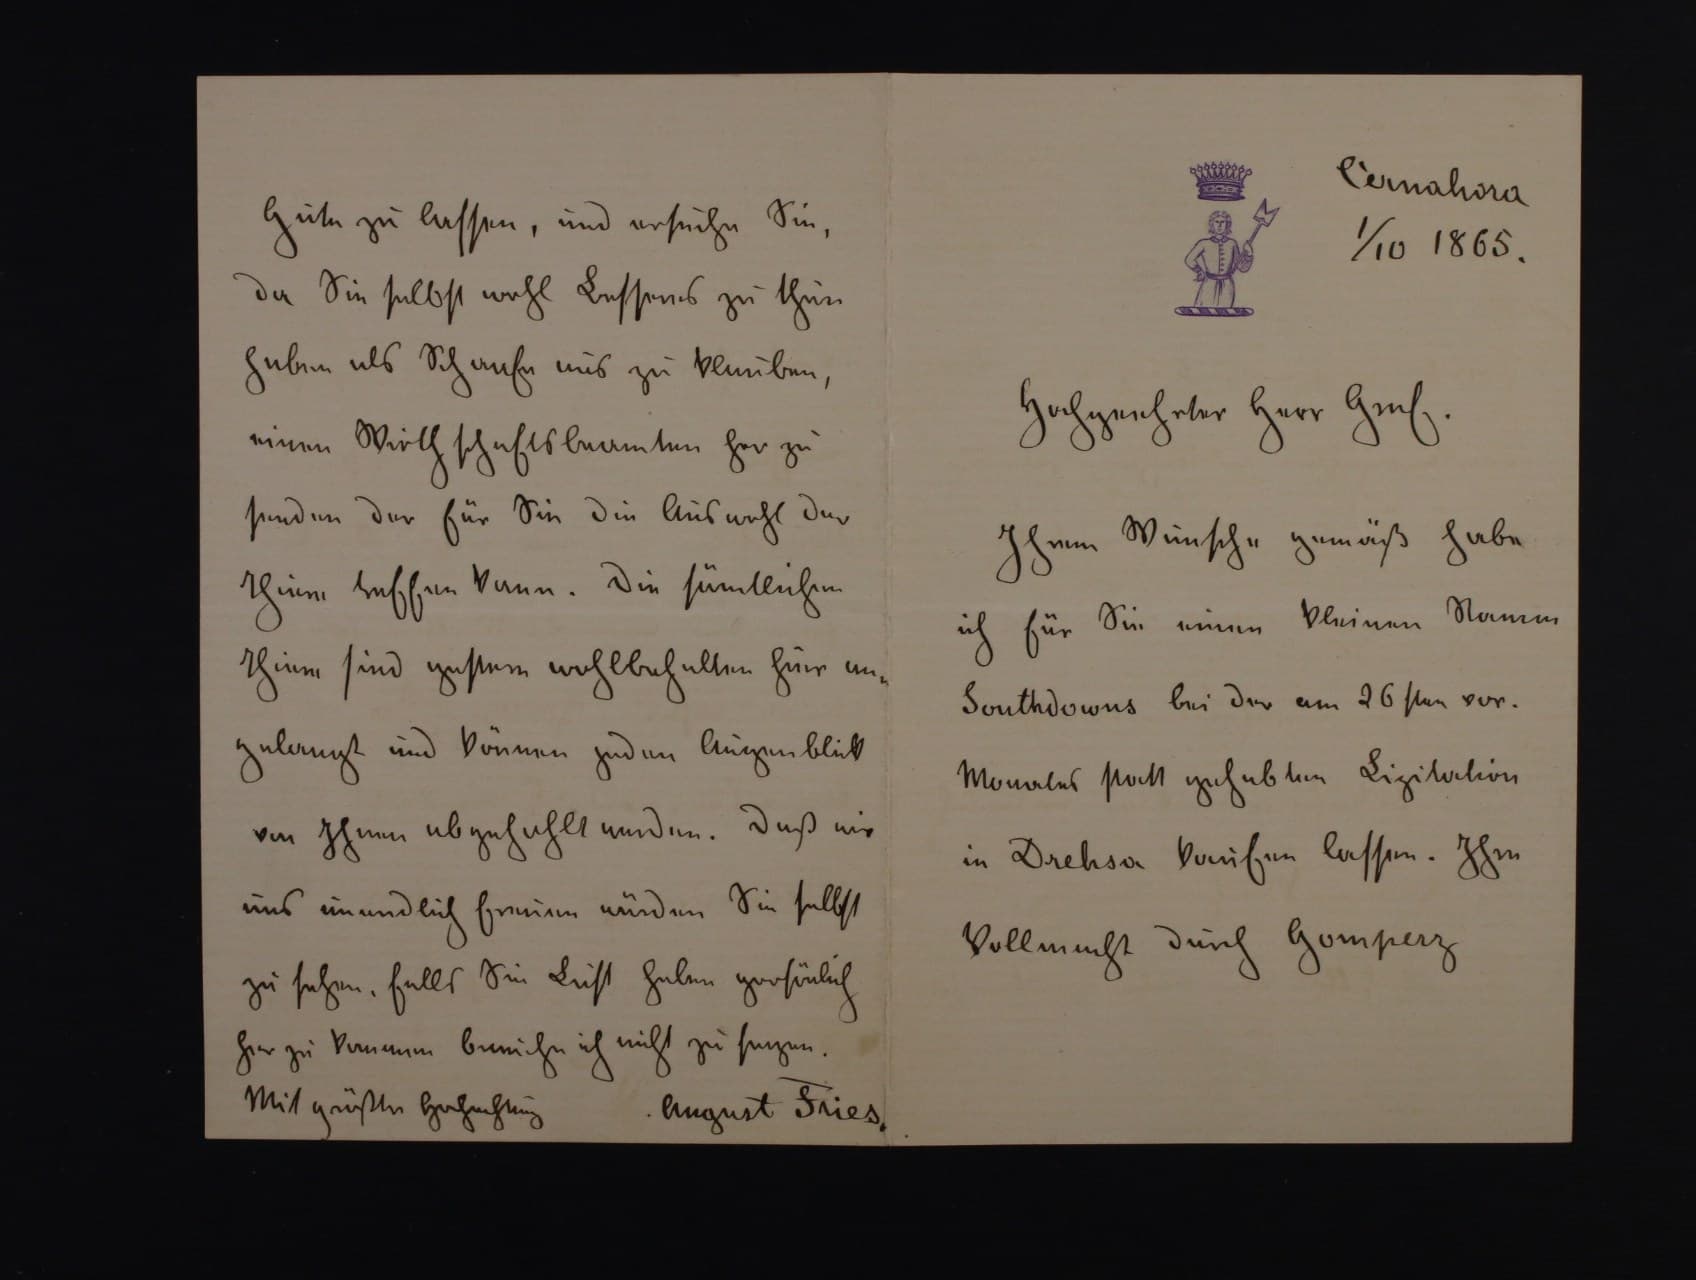 Černahora
1/10 1865.
Hochgeehrter Herr Graf.
Ihrem Wunsche gemäß habe
ich für Sie einen kleinen Stamm
Southdowns bei der am 26sten vor.
Monates statt gehabten Lizitation
in Drehsa kaufen lassen. Ihre
Vollmacht durch Gomperz
Gute zu lassen, und ersuche Sie,
da Sie selbst wohl Besseres zu thun
haben als Schaafe aus zu klauben,
einen Wirthschaftsbeamten her zu
senden der für Sie die Auswahl der
Thiere treffen kann. Die sämtlichen
Thiere sind gestern wohlbehalten hier an-
gelangt und können jeden Augenblick
von Ihnen abgehohlt werden. Daß wir
uns unendlich freuen würden Sie selbst
zu sehen, falls Sie Lust haben persönlich
her zu kommen brauche ich nicht zu sagen.
Mit größter Hochachtung August Fries.